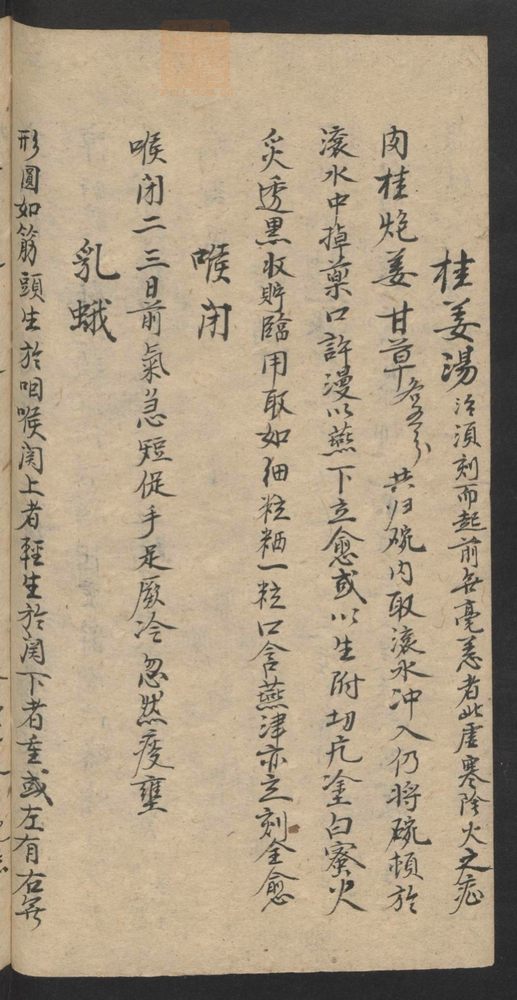 桂姜湯 治須刻而起前無毫恙者此虛寒陰火之症
肉桂炮姜甘草各五分 共归碗内取滚水冲入仍将碗頓於
滚水中掉藥口許漫以燕下立愈或以生附切片塗白蜜火
炙透黑收貯臨用取如細粒粞一粒口含燕津亦立刻全愈
喉闭
喉闭二三日前氣急短促手足厥冷忽然痰壅
乳蛾
形圓如筯頭生於咽喉関上者輕生於関下者重或左有右無